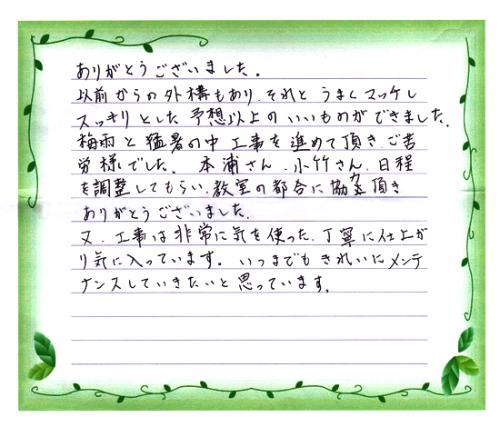 ありがとうございました。
以前からの外構もあり、それと うまくマッケし
スッキリとした、予想以上の いいものができました。
梅雨と猛暑の中 工事を進めて頂き、ご苦
労様でした。 本浦さん、小竹さん、日程
を調整してもらい、教室の都合に協力頂き
ありがとうございました。
又、工事は非常に気を使った、丁寧に仕上が
り気に入っています。いつまでも きれいにメンテ
ナンスしていきたいと思っています。